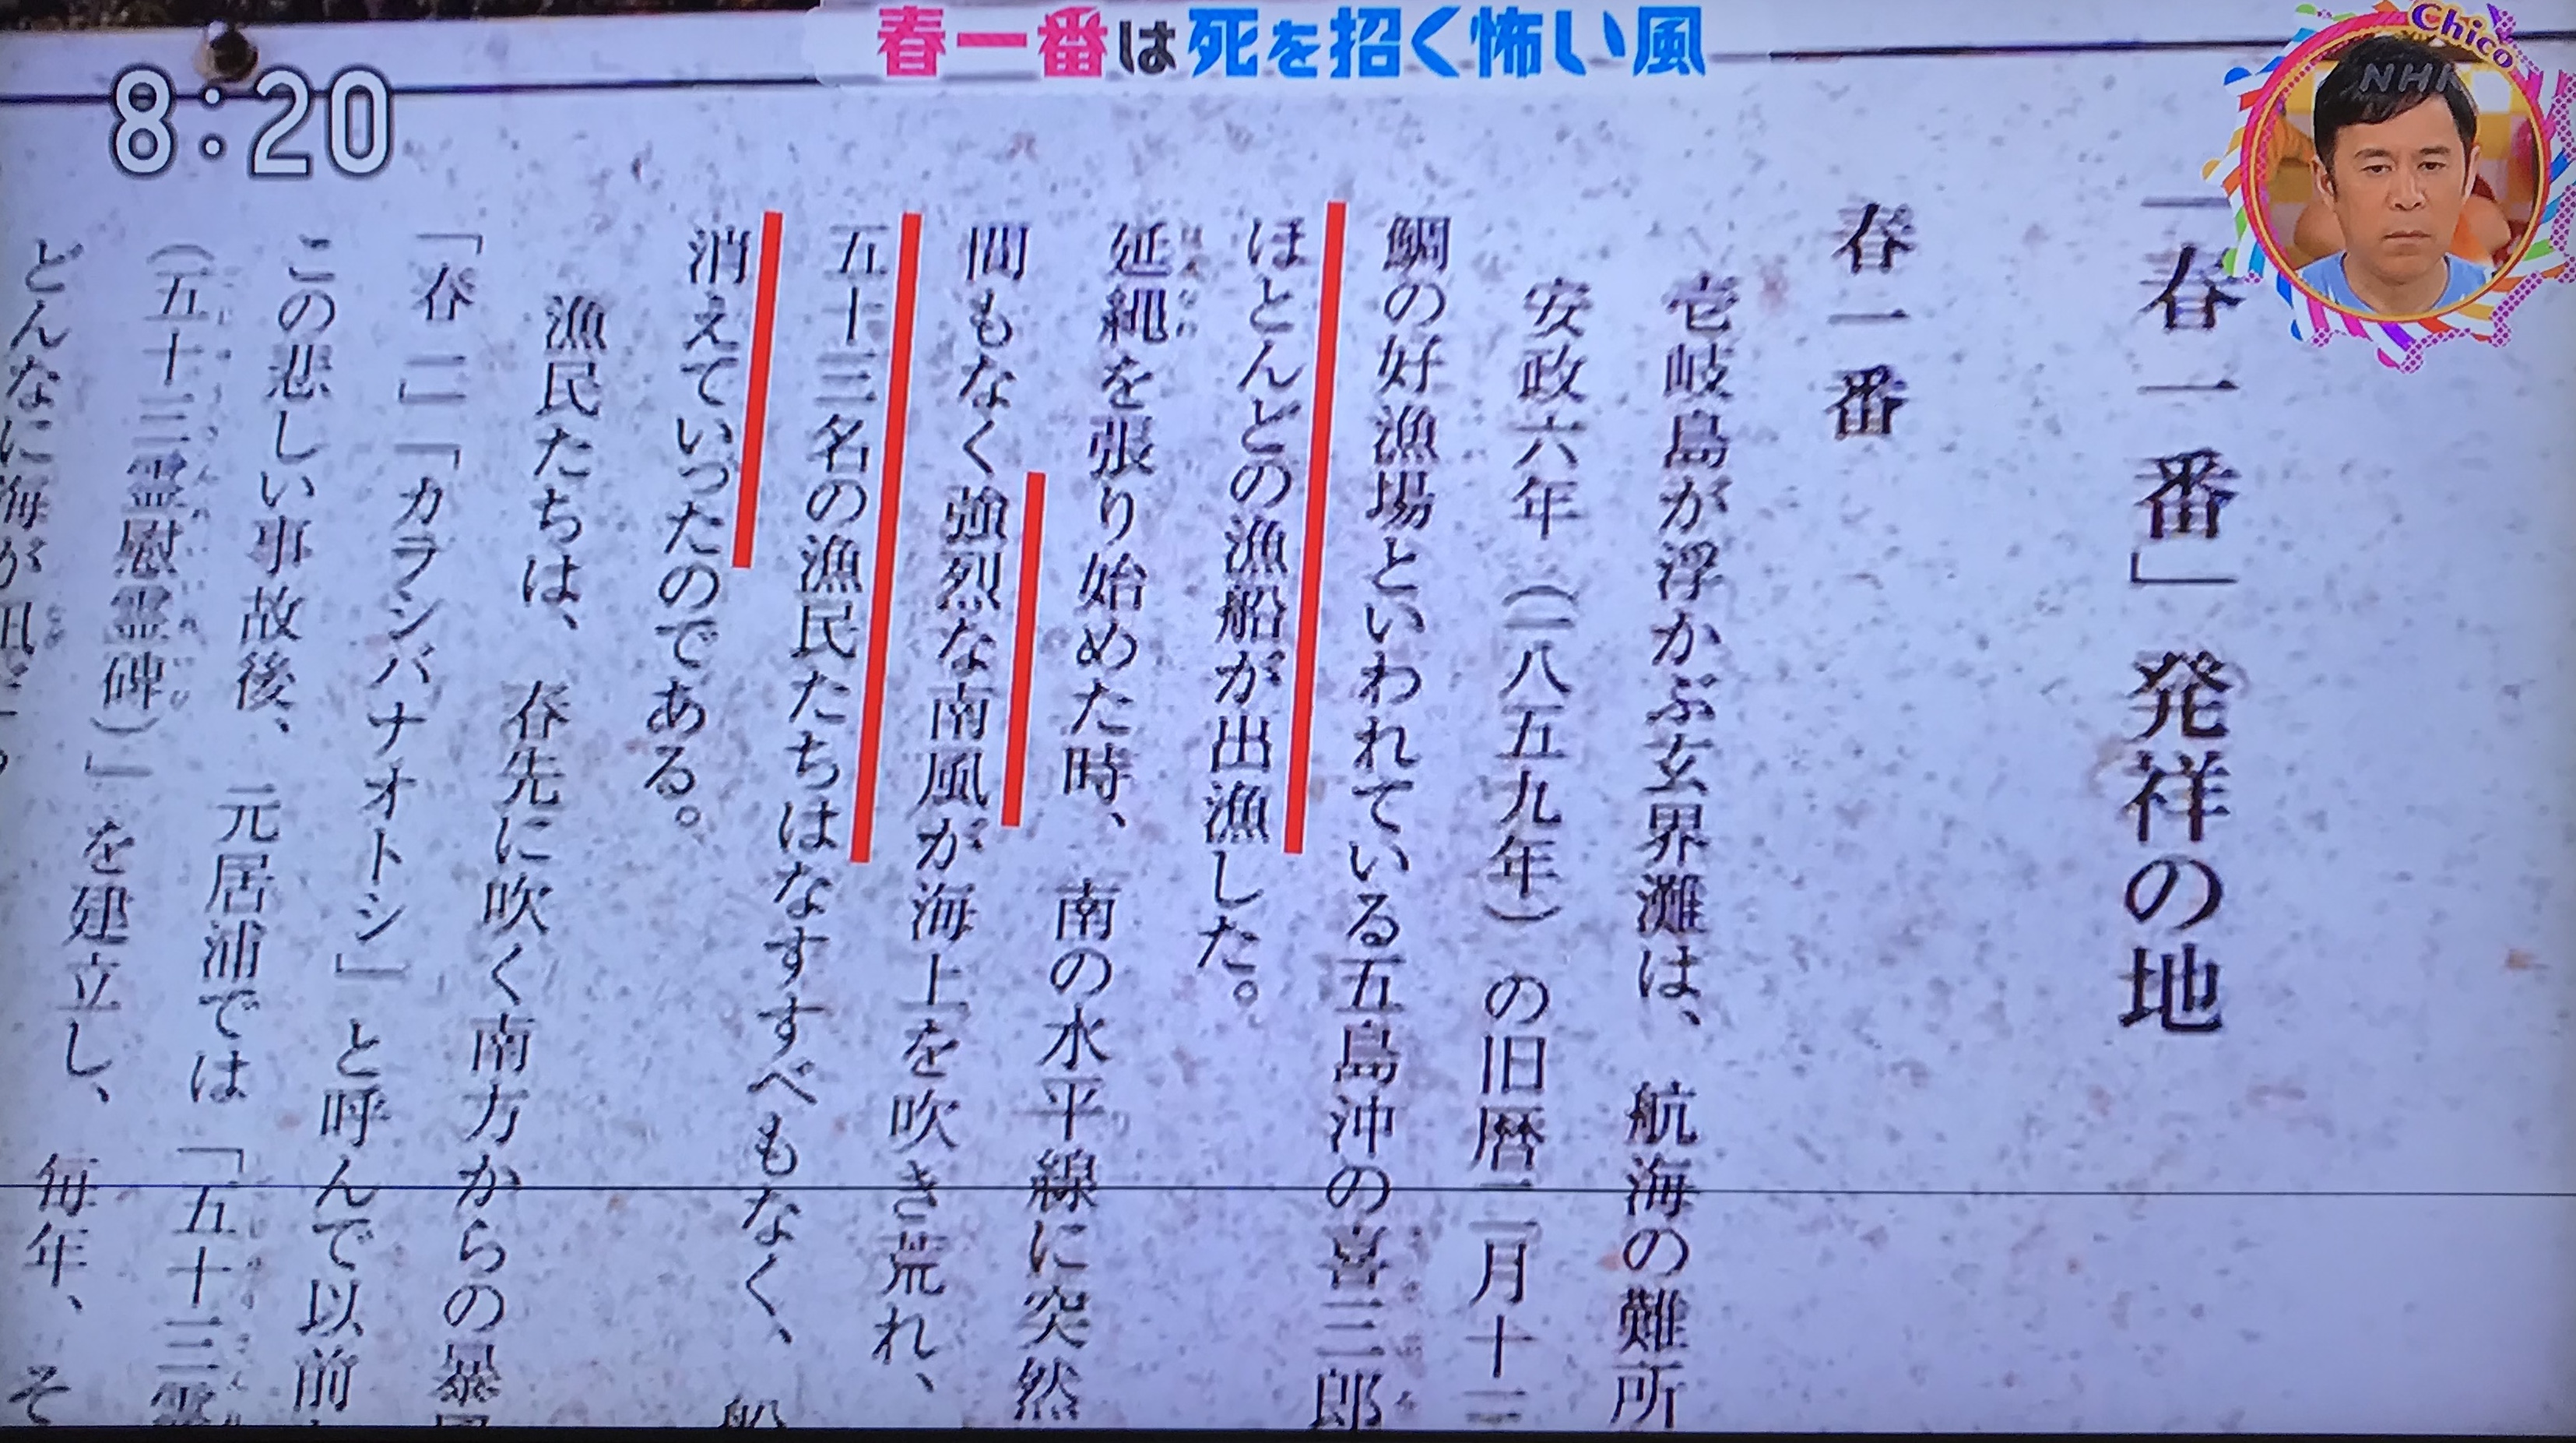 春一番は死を招く怖い風
8:20
Chico
NHK
「春一番」発祥の地
春一番
壱岐島が浮かぶ玄界灘は、航海の難所
安政六年(一八五九年)の旧暦二月十三
鯛の好漁場といわれている五島沖の喜三郎
ほとんどの漁船が出漁した。
延縄を張り始めた時、南の水平線に突然
間もなく強烈な南風が海上を吹き荒れ、
五十三名の漁民たちはなすすべもなく、船
消えていったのである。
漁民たちは、春先に吹く南方からの暴
「春一」「カラシバナオトシ」と呼んで以前
この悲しい事故後、元居浦では「五十三霊
(五十三霊慰霊碑)」を建立し、毎年、そ
どんなに海が